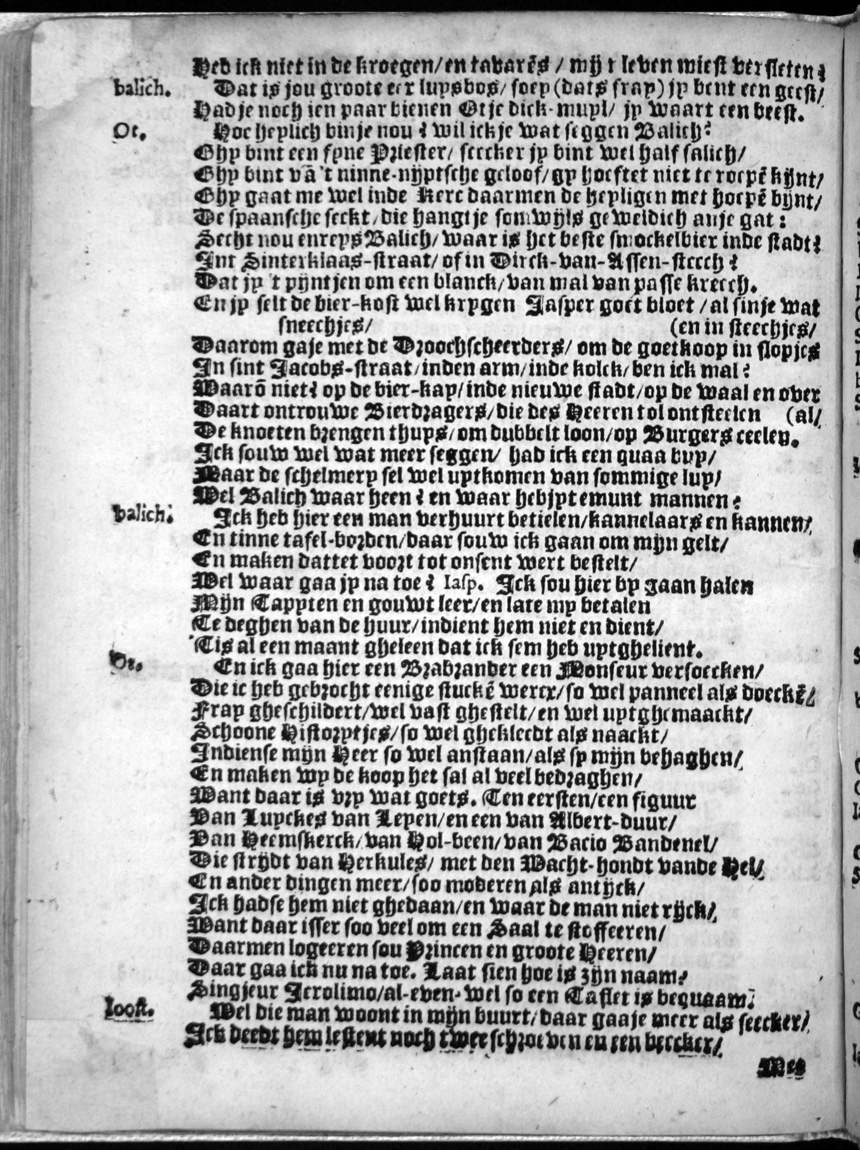 Heb ick niet in de kroegen/en tavarēs / mijn leven miest versleten?
balich. Dat is jou groote eer lupsbos/ soep (dats frap) jp bent een geest/
Had je noch ien paar bienen Otje dick-mupl/ jp waart een beest.
Ot. Hoe heplich bin je nou? wil ick je wat seggen Balich?
Ghp bint een fpne Priester/ seecker jp bint wel half salich/
Ghp bint vā't ninne-nijptsche geloof/ gp hoeftet niet te roepē kijnt/
Ghp gaat me wel inde Kerc daarmen de hepligen met hoepē bijnt/
De spaansche seckt/die hangt je somwijls geweldich anje gat:
Secht nou enreps Balich/ waar is het beste smockelbier inde stadt?
Int Sinterklaas-straat/ of in Dirck-van-Assen-steech?
Dat jp 't pijntjen om een blanck/van mal van passe kreech.
En jp selt de bier-kost wel krpgen Jasper goet bloet/al sinje wat
sneechjes/ (en in steechjes/
Daarom gaje met de Droochscheerders/ om de goetkoop in slopjes
In sint Jacobs-straat/inden arm/inde kolck/ben ick mal?
Waarō niet? op de bier-kap/inde nieuwe stadt/op de waal en over
Daart ontrouwe Bierdragers/die des Heeren tol ontsteelen (al/
De knoeten brengen thups/om dubbelt loon/op Burgers ceelen.
Ick souw wel wat meer seggen/ had ick een quaa bup/
Maar de schelmerp sel wel uptkomen van sommige lup/
Wel Balich waar heen? en waar hebjpt emunt mannen?
balich. Ick heb hier een man verhuurt betielen/kannelaars en kannen/
En tinne tafel-borden/daar souw ick gaan om mijn gelt/
En maken dattet voort tot onsent wert bestelt/
Wel waar gaa jp na toe? Iasp. Ick sou hier bp gaan halen
Mijn Tappten en gouwt leer/en late mp betalen
Te deghen van de huur/indient hem niet en dient/
'Tis al een maant gheleen dat ick sem heb uptghelient.
Ot. En ick gaa hier een Brabrander een Monseur versoecken/
Die ic heb gebrocht eenige stuckē wercx/so wel panneel als doeckē/
Frap gheschildert/wel vast ghestelt/en wel uptghemaackt/
Schoone Historptjes/so wel ghekleedt als naackt/
Indiense mijn Heer so wel anstaan/als sp mijn behaghen/
En maken wp de koop het sal al veel bedraghen/
Want daar is vrp wat goets. Ten eersten/een figuur
Van Lupckes van Lepen/en een van Albert-duur/
Van Heemskerck/van Hol-been/van Bacio Bandenel/
Die strijdt van Herkules/ met den Wacht-hondt vande Hel/
En ander dingen meer/soo moderen als antijck/
Ick hadse hem niet ghedaan/en waar de man niet rijck/
Want daar isser soo veel om een Saal te stoffeeren/
Daarmen logeeren sou Princen en groote Heeren/
Daar gaa ick nu na toe. Laat sien hoe is zijn naam?
Singjeur Jerolimo/al-even-wel so een Taflet is bequaam.
Ioost. Wel die man woont in mijn buurt/daar gaaje meer als seecker/
Ick deedt hem lestent noch twee schroeven en een beecker/
Met